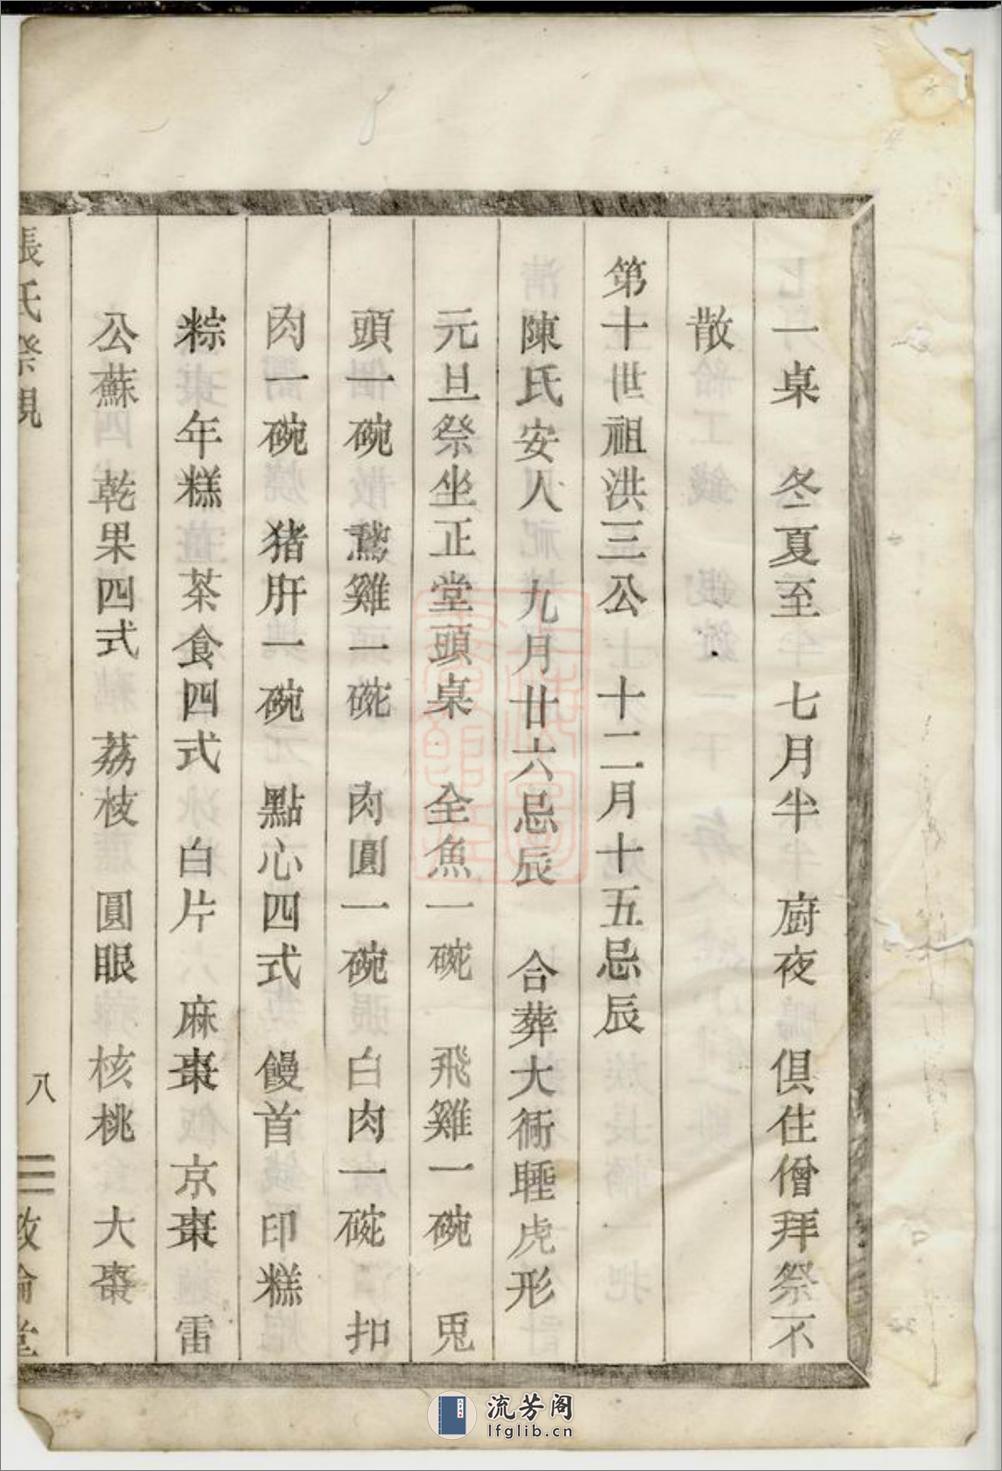 一桌　冬夏至　七月半　廚夜　俱住僧拜祭不
散
第十世祖洪三公　十二月十五忌辰
陳氏安人　九月廿六忌辰　合葬大衕睡虎形
元旦祭坐正堂頭桌　全魚一碗　飛雞一碗　兎
頭一碗　鵞雞一碗　肉圓一碗　白肉一碗　扣
肉一碗　猪肝一碗　點心四式　饅首　印糕
粽　年糕　茶食四式　白片　麻棗　京棗　雷
公蘇　乾果四式　荔枝　圓眼　核桃　大棗
張氏祭規
八
敦倫堂
流芳阁
lfglib.cn